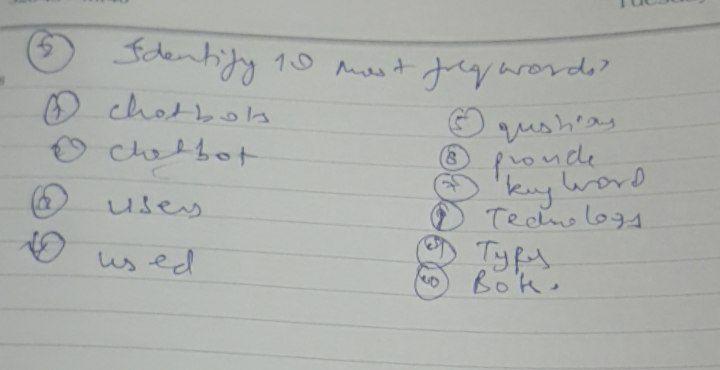 ⑤ Identify 10 most freq words?
① chatbots
② chatbot
③ users
④ used
⑤ qushions
⑥ provide
⑦ key word
⑧ Technology
⑨ Types
⑩ Bots.